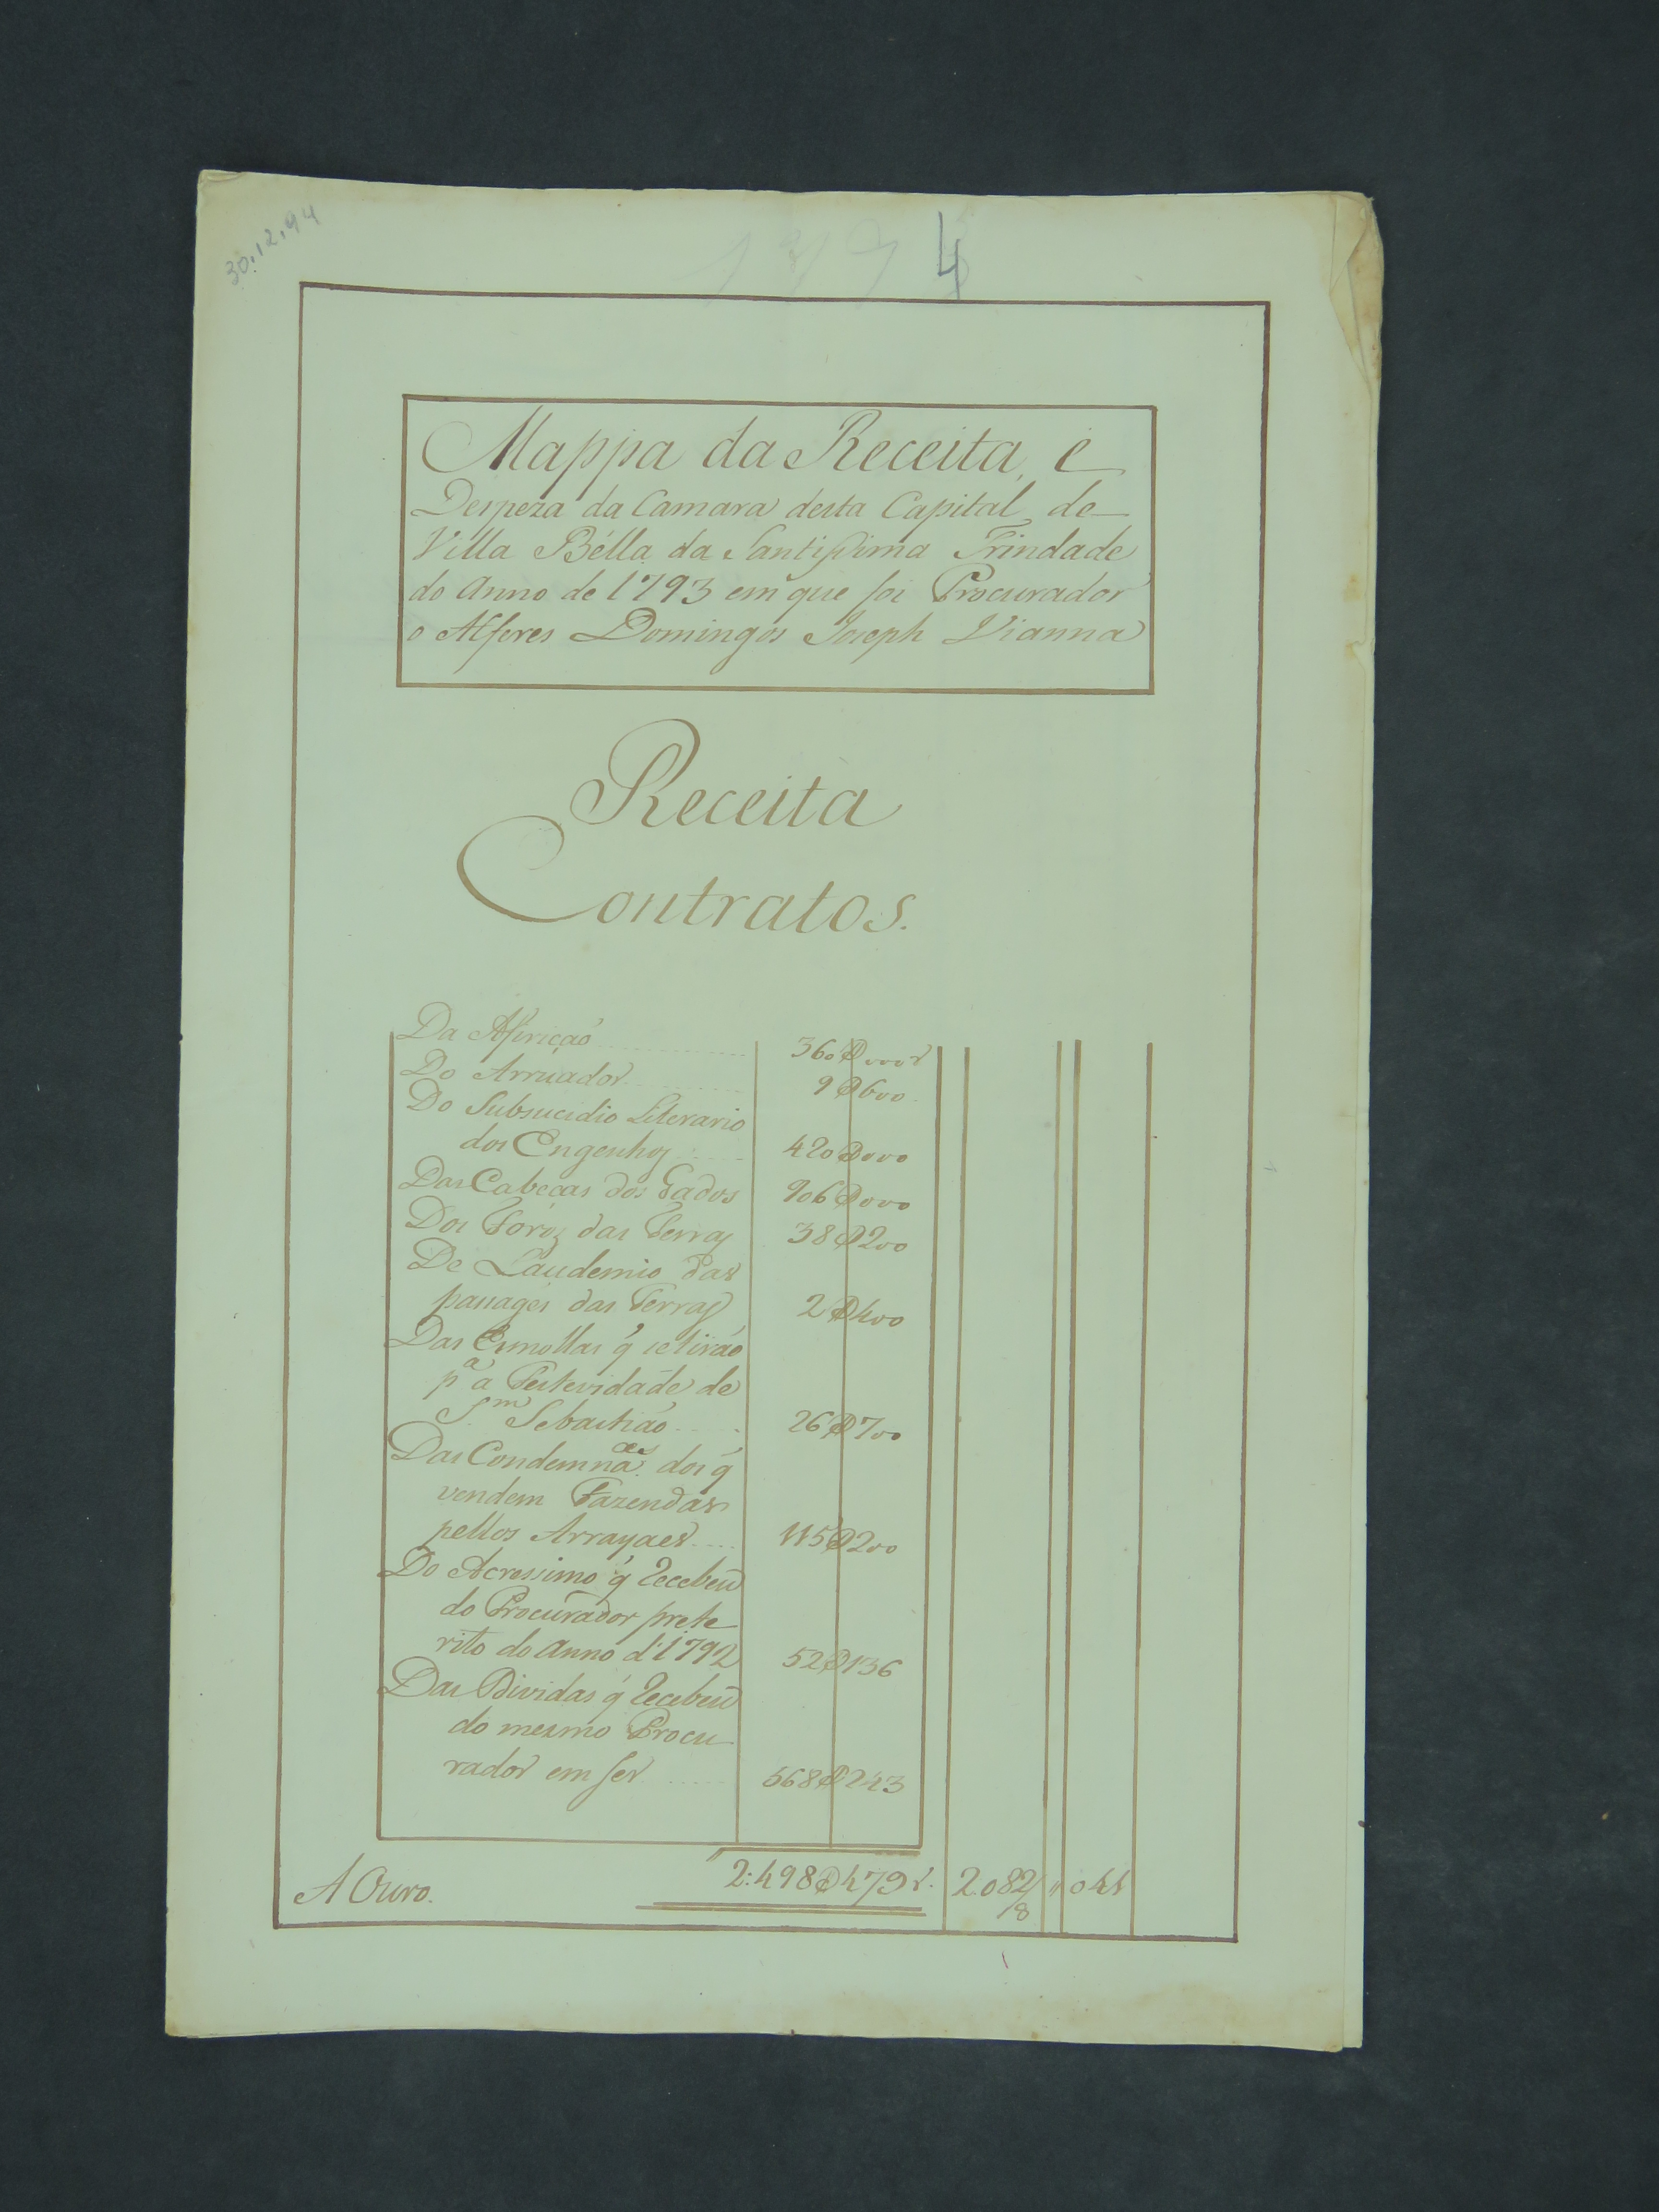 30.12.94
4
Mappa da Receita, e
Despeza da Camara desta Capital de
Villa Bélla da Santissima Trindade
do Anno de 1793 em que foi Procurador
o Alferes Domingos Joseph Vianna
Receita
Contratos.
Da Afiriçaõ 360$000r
Do Arruador 9$600
Do Subsucidio Literario
dos Engenhos 420$000
Das Cabecas dos Gados 906$000
Dos Foros das Terras 38$200
De Laudemio das
passages das Terras 2$400
Das Esmollas q̃ se tiráo
pª a Festevidade de
S.m Sebastiáo 26$700
Das Condemnaçes dos q̃
vendem Fazendas
pellos Arrayaes 115$200
Do Acressimo q̃ Recebeu
do Procurador prete
rito do Anno d'1792 52$136
Das Dividas q̃ Recebeu
do mesmo Procu
rador em ser 568$243
A Ouro. 2:498$479r. 2.082/8 " 0 44